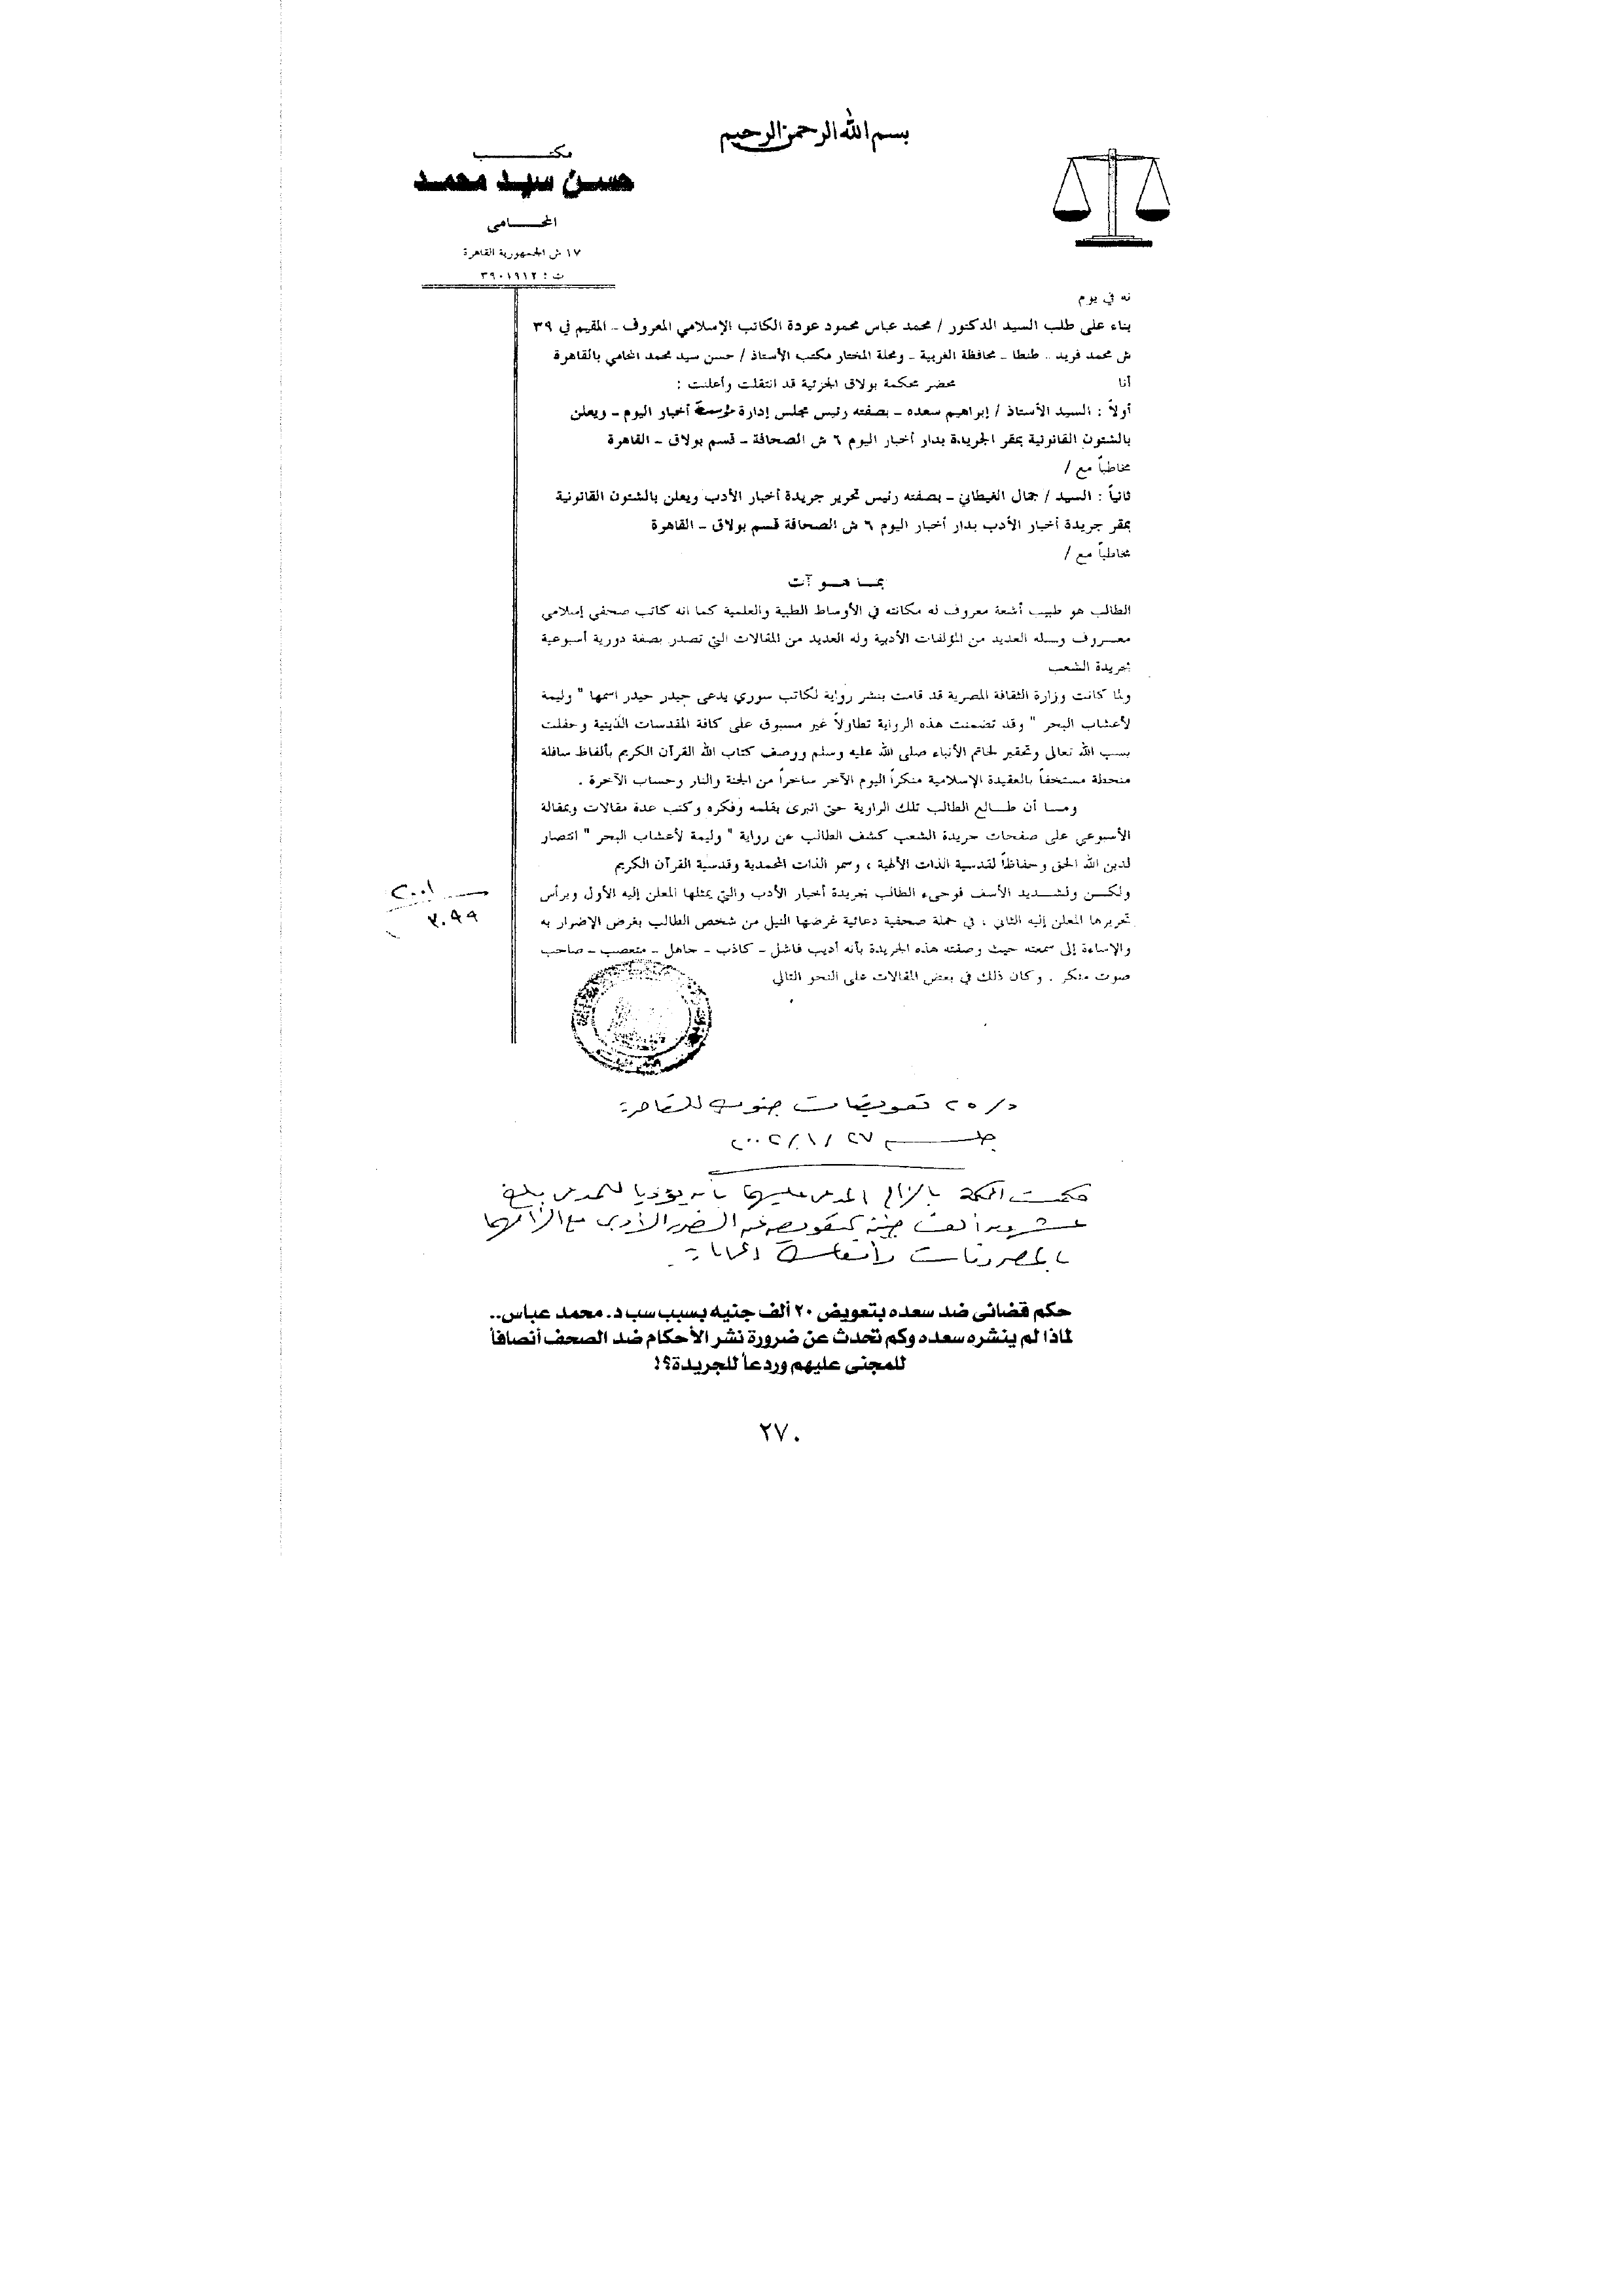 بسم الله الرحمن الرحيم
مكتب
حسن سيد محمد
المحامى
١٧ ش الجمهورية القاهرة
ت : ٣٩٠١٩١٢
نه في يوم
بناء على طلب السيد الدكتور / محمد عباس محمود عودة الكاتب الإسلامي المعروف – المقيم في ٣٩
ش محمد فريد .. طنطا – محافظة الغربية – ومحلة المختار مكتب الأستاذ / حسن سيد محمد المحامي بالقاهرة
أنا محضر محكمة بولاق الجزئية قد انتقلت وأعلنت :
أولاً : السيد الأستاذ / إبراهيم سعده – بصفته رئيس مجلس إدارة مؤسسة أخبار اليوم – ويعلن
بالشئون القانونية بمقر الجريدة بدار أخبار اليوم ٦ ش الصحافة – قسم بولاق – القاهرة
مخاطباً مع /
ثانياً : السيد / جمال الغيطاني – بصفته رئيس تحرير جريدة أخبار الأدب ويعلن بالشئون القانونية
بمقر جريدة أخبار الأدب بدار أخبار اليوم ٦ ش الصحافة قسم بولاق – القاهرة
مخاطباً مع /
بمــا هــو آت
الطالب هو طبيب أشعة معروف له مكانته في الأوساط الطبية والعلمية كما انه كاتب صحفي إسلامي
معــروف وســله العديد من المؤلفات الأدبية وله العديد من المقالات التي تصدر بصفة دورية أسبوعية
بجريدة الشعب
ولما كانت وزارة الثقافة المصرية قد قامت بنشر رواية لكاتب سوري يدعى حيدر حيدر اسمها " وليمة
لأعشاب البحر " وقد تضمنت هذه الرواية تطاولاً غير مسبوق على كافة المقدسات الدينية وحفلت
بسب الله تعالى وتحقير لخاتم الأنباء صلى الله عليه وسلم ووصف كتاب الله القرآن الكريم بألفاظ سافلة
منحطة مستخفاً بالعقيدة الإسلامية منكراً اليوم الآخر ساخراً من الجنة والنار وحساب الآخرة .
ومــا أن طــالع الطالب تلك الراوية حتى انبرى بقلمه وفكره وكتب عدة مقالات وبمقالة
الأسبوعي على صفحات جريدة الشعب كشف الطالب عن رواية " وليمة لأعشاب البحر " انتصار
لدين الله الحق وحفاظاً لقدسية الذات الألهية ، وسمو الذات المحمدية وقدسية القرآن الكريم
ولكــن ولشــديد الأسف فوجيء الطالب بجريدة أخبار الأدب والتي يمثلها المعلن إليه الأول ويرأس
تحريرها المعلن إليه الثاني ، في حملة صحفية دعائية غرضها النيل من شخص الطالب بغرض الإضرار به
والإساءة إلى سمعته حيث وصفته هذه الجريدة بأنه أديب فاشل – كاذب – جاهل – متعصب – صاحب
صوت منكر . وكان ذلك في بعض المقالات على النحو التالي
٢٠٠١
٣٠٩٩
د/ ٢٥ تعويضات جنوب القاهرة
جلسة ٢٧/١/٢٠٠٢
حكمت المحكمة بالزام المدعى عليهما بأن يؤديا للمدعى مبلغ
عشرون ألف جنيه كتعويض عن الضرر الأدبى مع الزامهما
بالمصروفات وأتعاب المحاماة
حكم قضائى ضد سعده بتعويض ٢٠ ألف جنيه بسبب سب د. محمد عباس..
لماذا لم ينشره سعده وكم تحدث عن ضرورة نشر الأحكام ضد الصحف أنصافاً
للمجنى عليهم وردعاً للجريدة؟!
٢٧٠